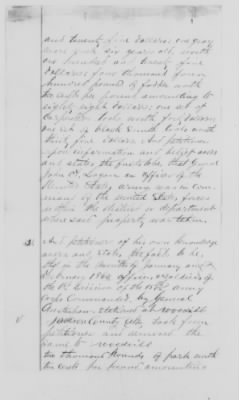 and twenty five dollars; one gray
mare, good, six years old, worth
one hundred and twenty five
dollars; four thousand four
hundred pounds of fodder worth
two cents per pound amounting to
eighty eight dollars; one set of
Carpenters tools worth five dollars
one set of black Smith tools worth
thirty five dollars. And petitioner
upon information and belief avers
and states the facts to be, that General
John A. Logan an officer of the
United States army was in com-
mand of the United States forces
within the district or department
where said property was taken.
And petitioner of his own knowledge
avers and states the fact to be,
that on the months of January and
February 1864 officers, or soldiers of
the 1st Division of the 15th Army
Corps Commanded by General
Osterhaus stationed at Woodville
Jackson County Ala. took from
petitioner and removed the
same to Woodville
ten thousand Pounds of pork worth
ten cents per pound amounting